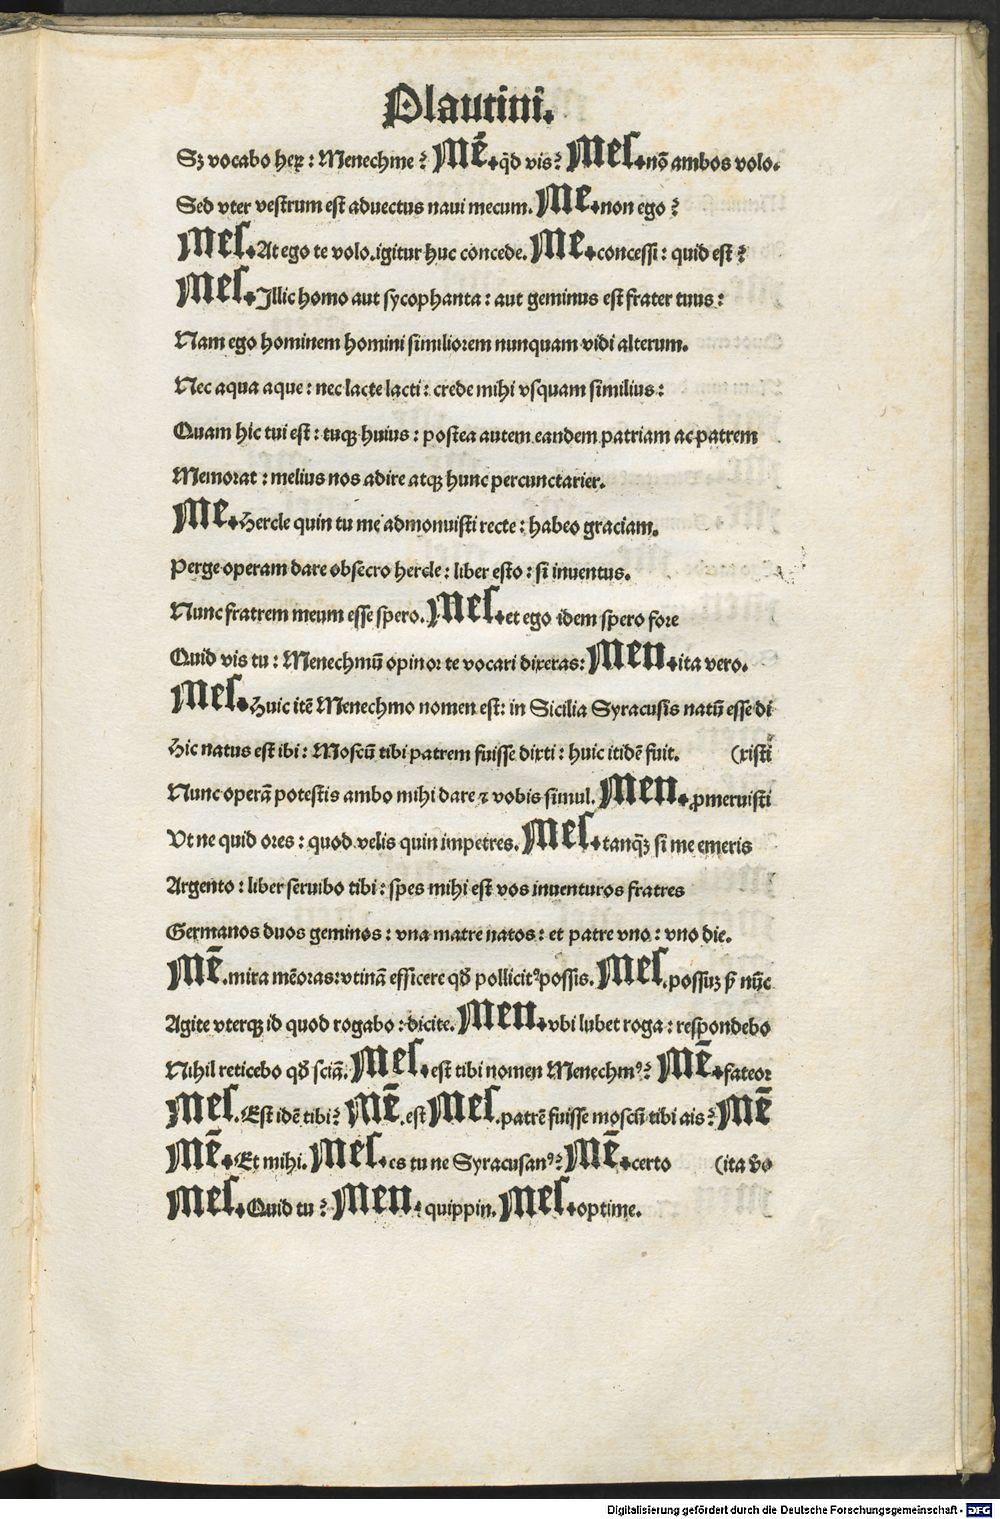 Plautini.
Sꝫ vocabo heꝝ : Menechme? Mē. qͥd vis? Mes. nō ambos volo.
Sed vter vestrum est aduectus naui mecum. Me. non ego?
Mes. At ego te volo. igitur huc concede. Me. concessi : quid est?
Mes. Illic homo aut sycophanta : aut geminus est frater tuus :
Nam ego hominem homini similiorem nunquam vidi alterum.
Nec aqua aque : nec lacte lacti : crede mihi vsquam similius :
Quam hic tui est : tuqꝫ huius : postea autem eandem patriam ac patrem
Memorat : melius nos adire atqꝫ hunc percunctarier.
Me. Hercle quin tu me admonuisti recte : habeo graciam.
Perge operam dare obsecro hercle : liber esto : si inuentus.
Nunc fratrem meum esse spero. Mes. et ego idem spero fore
Quid vis tu : Menechmū opinor te vocari dixeras : Men. ita vero.
Mes. Huic itē Menechmo nomen est : in Sicilia Syracusis natū esse di
Hic natus est ibi : Moscū tibi patrem fuisse dixti : huic itidē fuit. (xisti
Nunc operā potestis ambo mihi dare ⁊ vobis simul. Men. ꝓmeruisti
Vt ne quid ores : quod velis quin impetres. Mes. tanqͣꝫ si me emeris
Argento : liber seruibo tibi : spes mihi est vos inuenturos fratres
Germanos duos geminos : vna matre natos : et patre vno : vno die.
Mē. mira mēoras : vtinā efficere qd̕ pollicitꝰ possis. Mes. possuꝫ sꝫ nūc
Agite vterqꝫ id quod rogabo : dicite. Men. vbi lubet roga : respondebo
Nihil reticebo qd̕ sciā. Mes. est tibi nomen Menechmꝰ? Mē. fateor
Mes. Est idē tibi? Mē. est Mes. patrē fuisse moscū tibi ais? Mē
Mē. Et mihi. Mes. es tu ne Syracusanꝰ? Mē. certo (ita v̄o
Mes. Quid tu? Men. quippin. Mes. optime.
Digitalisierung gefördert durch die Deutsche Forschungsgemeinschaft - DFG